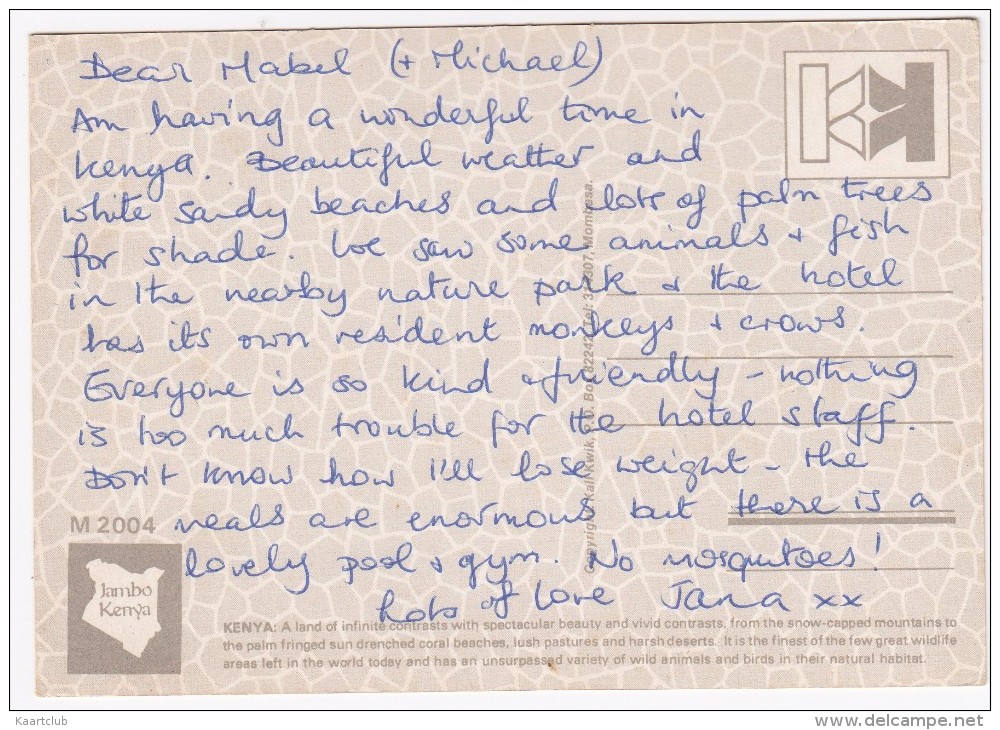 Dear Mabel (+ Michael)
Am having a wonderful time in
Kenya. Beautiful weather and
white sandy beaches and lots of palm trees
for shade. We saw some animals + fish
in the nearby nature park + the hotel
has its own resident monkeys + crows.
Everyone is so kind + friendly - nothing
is too much trouble for the hotel staff.
Don't know how I'll lose weight - the
meals are enormous but there is a
lovely pool + gym. No mosquitoes!
Lots of love Jana xx
M 2004
Jambo
Kenya
KENYA: A land of infinite contrasts with spectacular beauty and vivid contrasts, from the snow-capped mountains to
the palm fringed sun drenched coral beaches, lush pastures and harsh deserts. It is the finest of the few great wildlife
areas left in the world today and has an unsurpassed variety of wild animals and birds in their natural habitat.
Copyright: Kwik, P.O. Box 82242, Mombasa.
Kaartclub
delcampe.net